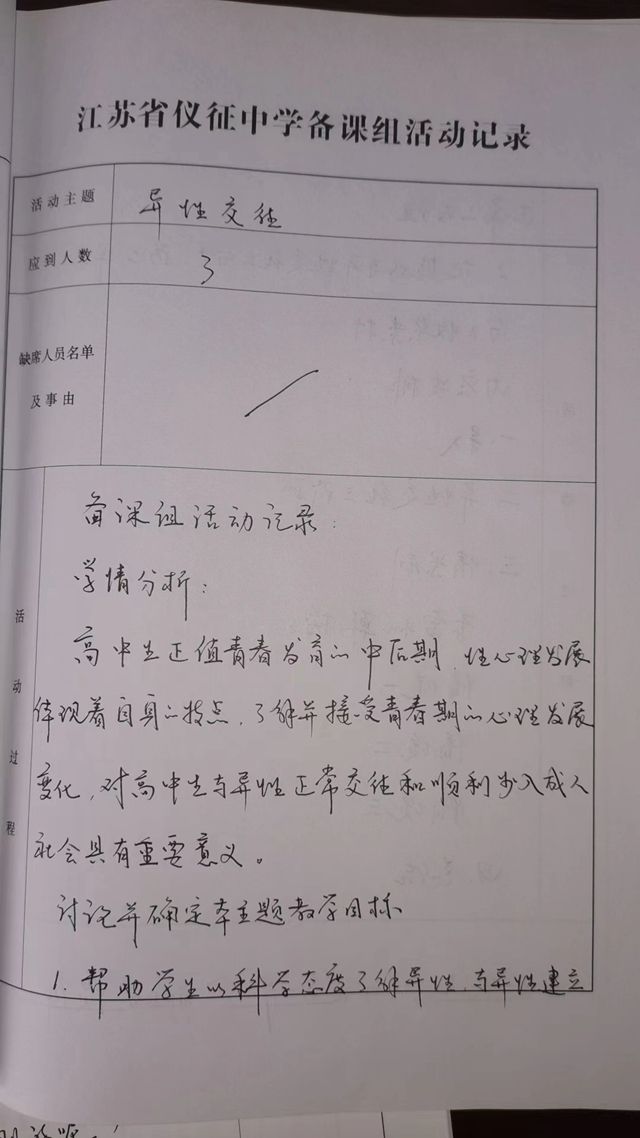 江苏省仪征中学备课组活动记录
活动主题 异性交往
应到人数 3
缺席人员名单及事由
活动过程
备课组活动记录：
学情分析：
高中生正值青春发育的中后期，性心理发展
体现着自身的特点，了解并接受青春期的心理发展
变化，对高中生与异性正常交往和顺利步入成人
社会具有重要意义。
讨论并确定本主题教学目标
1. 帮助学生以科学态度了解异性，与异性建立